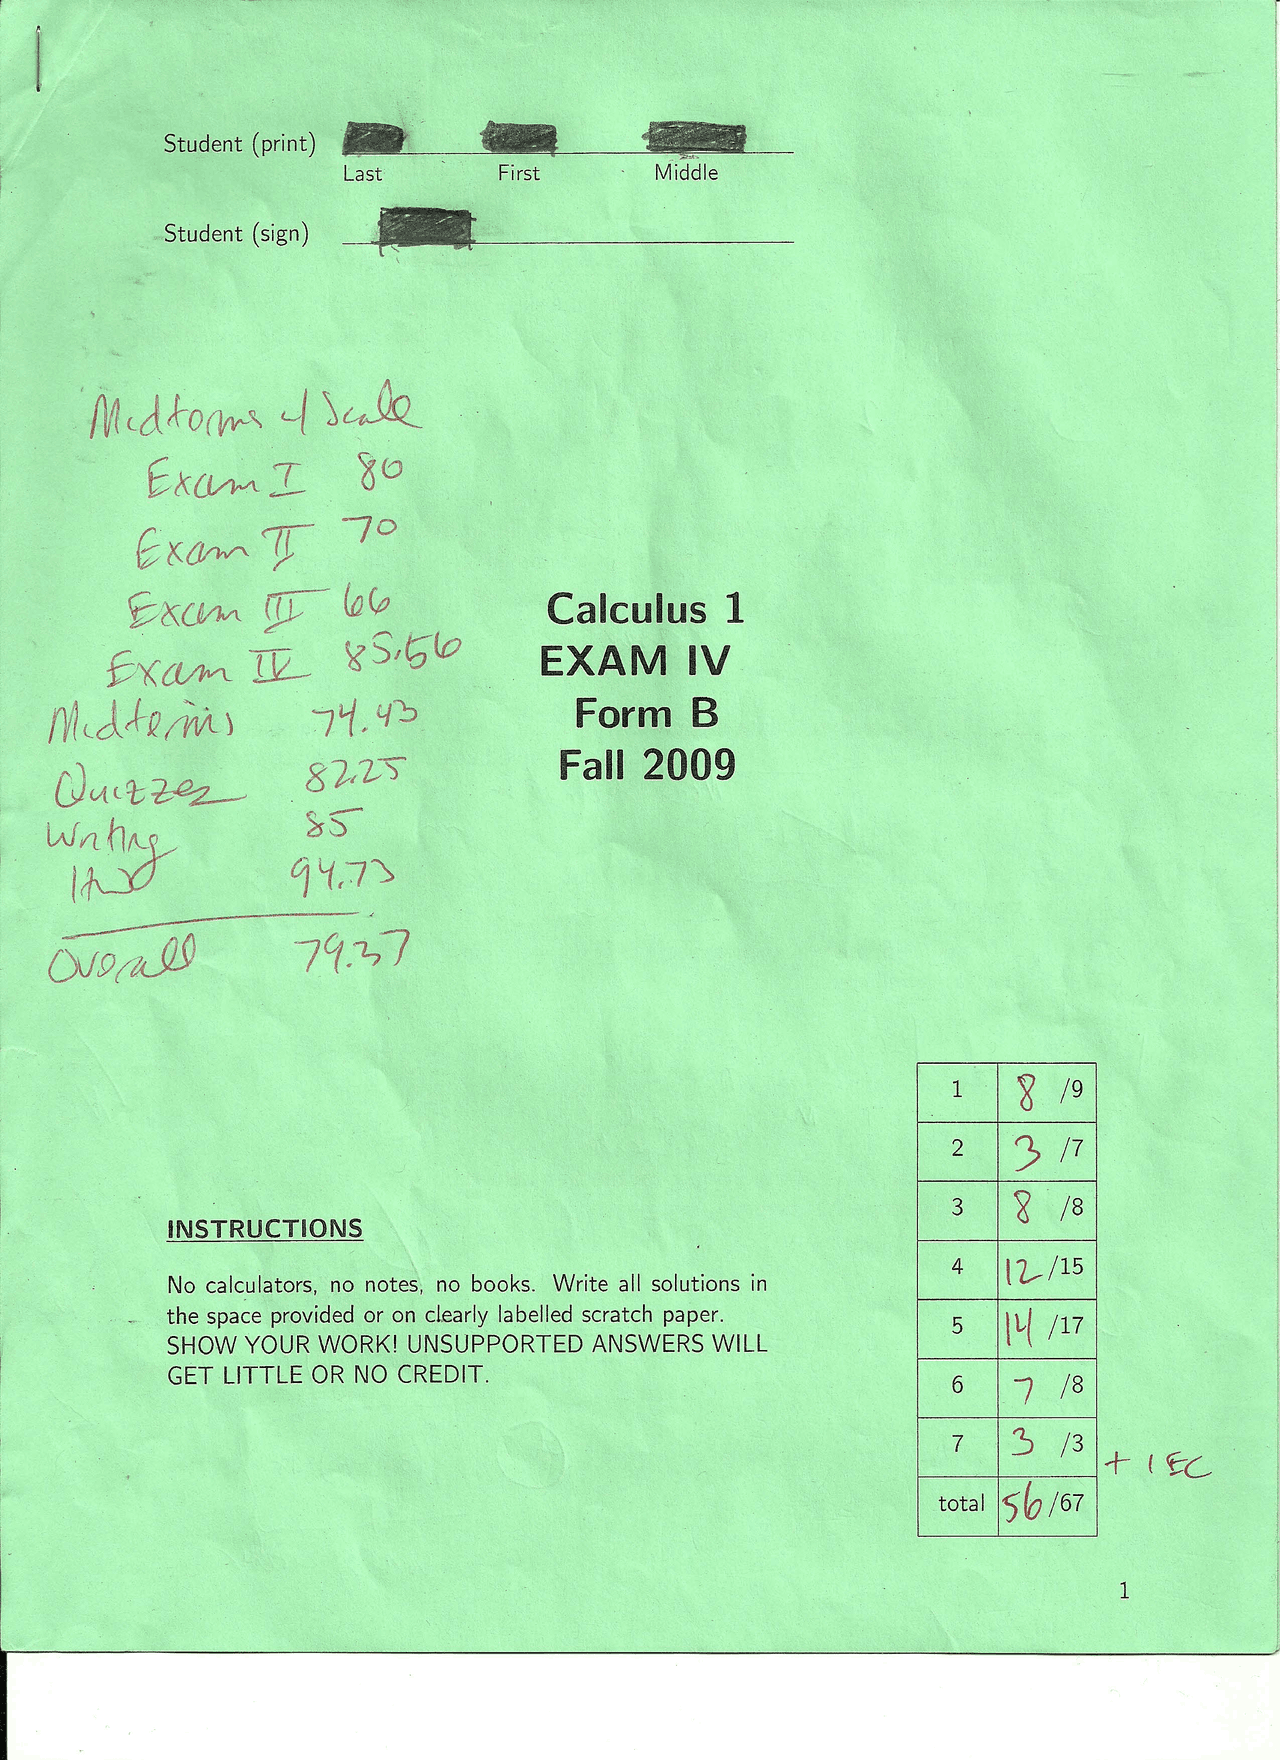 Student (print)
Last First Middle
Student (sign)
Midterms w/ Scale
Exam I 80
Exam II 70
Exam III 66
Exam IV 85.56
Midterms 74.43
Quizzes 82.25
Writing 85
HW 94.73
Overall 79.37
Calculus 1
EXAM IV
Form B
Fall 2009
1 8 /9
2 3 /7
3 8 /8
4 12 /15
5 14 /17
6 7 /8
7 3 /3
+ 1 EC
total 56 /67
INSTRUCTIONS
No calculators, no notes, no books. Write all solutions in
the space provided or on clearly labelled scratch paper.
SHOW YOUR WORK! UNSUPPORTED ANSWERS WILL
GET LITTLE OR NO CREDIT.
1